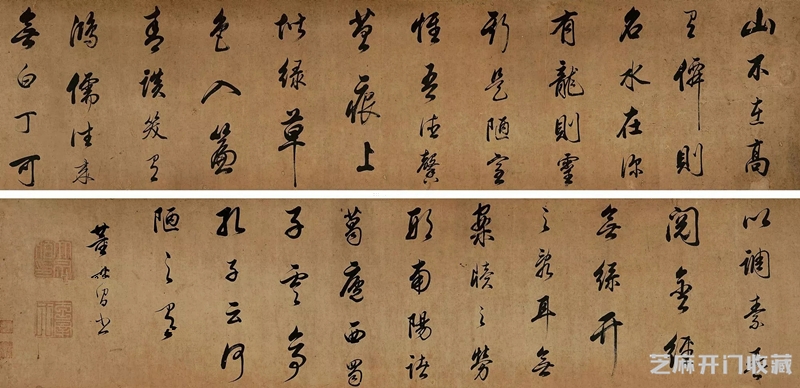 山不在高
有僊則
名水在深
有龍則靈
斯是陋室
惟吾德馨
苔痕上
階綠草
色入簾
青談笑有
鴻儒往來
無白丁可
以調素琴
閱金經
無絲竹
之亂耳無
案牘之勞
形南陽諸
葛廬西蜀
子雲亭
孔子云何
陋之有
董其昌書
芝麻开门收藏